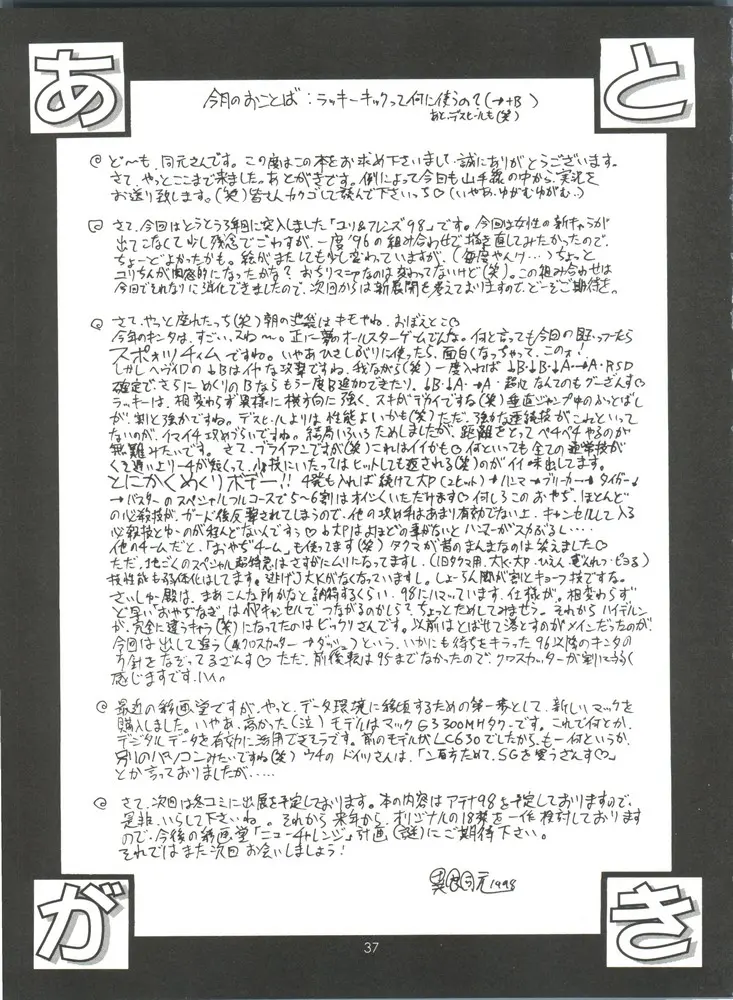 あとがき
今月のおことば：ラッキーキックって何に使うの？(→+B)
あと、デスヒールも(笑)
ど〜も、同元さんです。この度はこの本をお求め下さいまして誠にありがとうございます。
さて、やっとここまで来ました。あとがきです。例によって今回も山手線の中から、実況を
お送り致します。(笑)皆さんカクゴして読んで下さいっち♡(いやあ、ゆがむゆがむ..)
さて、今回はとうとう3年目に突入しました「ユリ&フレンズ98」です。今回は女性の新キャラが
出てこなくて少し残念でごわすが、一度'96の組み合わせで描き直してみたかったので、
ちょーどよかったかも。絵がまたしても少し変わっていますが、(毎度やんけ…)ちょっと
ユリちゃんが肉感的になったかな？おちリマニアなのは変わってないけど(笑)。この組み合わせは
今回でそれなりに消化できましたので、次回からは新展開を考えておりますので、どーぞご期待を。
さて、やっと座れたっち(笑)朝の池袋はキモやね、おぼえとこ♡
今年のキンタは、すごいっスね〜。正に夢のオールスターゲームでんな。何と言っても今回の
スポォツチィムですね。いやあひさしぶりに使ったら、面白くなっちゃって、このォ!
しかしヘヴィDの↓Bはイヤな攻撃ですね、我ながら(笑)一度入れば↓B・↓B・↓A→A・RSD
確定で、さらにめくりのBならもう一度B追加できたり。↓B・↓A・→A・超必なんてのもグーざんす♡
ラッキーは、相変わらず異様に横方向に強く、スキがデカイですな(笑)垂直ジャンプ中のふっとばし
が、割と強かですね。デスヒールよりは性能よいかも(笑)ただ、強力な連続技がこれといって
ないのが、イマイチ攻めづらいですね。結局いろいろためしましたが、距離をとってペチペチやるのが
無難みたいです。さて、ブライアンですが(笑)これはイイかも♡何といっても全ての通常技が
くそ遅い上リーチが短くって、必殺技にいたってはヒットしても反される(笑)のがイイ味出してます。
とにかくめくりボデー!!4発も入れば続けて大P(2ヒット)→ハンマー→ブリーカー→タイガー
→バスターのスペシャルフルコースで5〜6割はオイシくいただけます♡何しろこのおやぢ、ほとんど
の必殺技が、ガード後反撃されてしまうので、他の攻め手はあまり有効でない上、キャンセルして入る
必殺技とゆーのが殆んどないんですぅ♡大Pはよほどの事がないとハンマーがスカるし....
他のチームだと、「おやぢチーム」も使ってます(笑)タクマが昔のまんまなのは笑えました♡
ただ、地ごくのスペシャル超特急はさすがにムリになってますし、(旧タクマ用、大K・大P・ひえん
技性能も弱体化はしてます。逃げJ大Kがなくなっていますし。しょーらん脚が割とキョーフ技ですな。
さいしゅー殿は、まあこんな所がなと納得するくらい、98にハマッています。仕様が。相変わらず
ど早い"おやぢなぎ"は何キャンセルでつながるのかしら？ちょっとためしてみませう。それからハイデルン
が、完全に違うキャラ(笑)になってたのはビックリさんです。以前はとばせて落とすのがメインだったのが、
今回は出して追う(クロスカッター→ダッシュ)という、いかにも待ちをキラった96以降のキンタの
方針をなぞってるざんす♡ただ、前後転は95までなかったので、クロスカッターが割とうるさく
感じますです、ハイ。
最近の彩画堂ですが、やっと、データ環境に移項するための第一歩として、新しいマックを
購入しました。いやあ、高かった(泣)モデルはマックG3300MHタワーです。これで何とか、
デジタルデータを有効に活用できそうです。前のモデルがLC630でしたから、もー何というか、
別のパソコンみたいですね(笑)ウチのドイツさんは、「二百万ためて、SGを買うざんす♡」
とか言っておりましたが.....
さて、次回は冬コミに出展を予定しております。本の内容はアテナ98を予定しておりますので、
是非、いらして下さいね。それから来年から、オリジナルの18禁を一作検討しております
ので、今後の彩画堂「ニューチャレンジ」計画(謎)にご期待下さい。
それではまた次回お会いしましょう!
1998
37